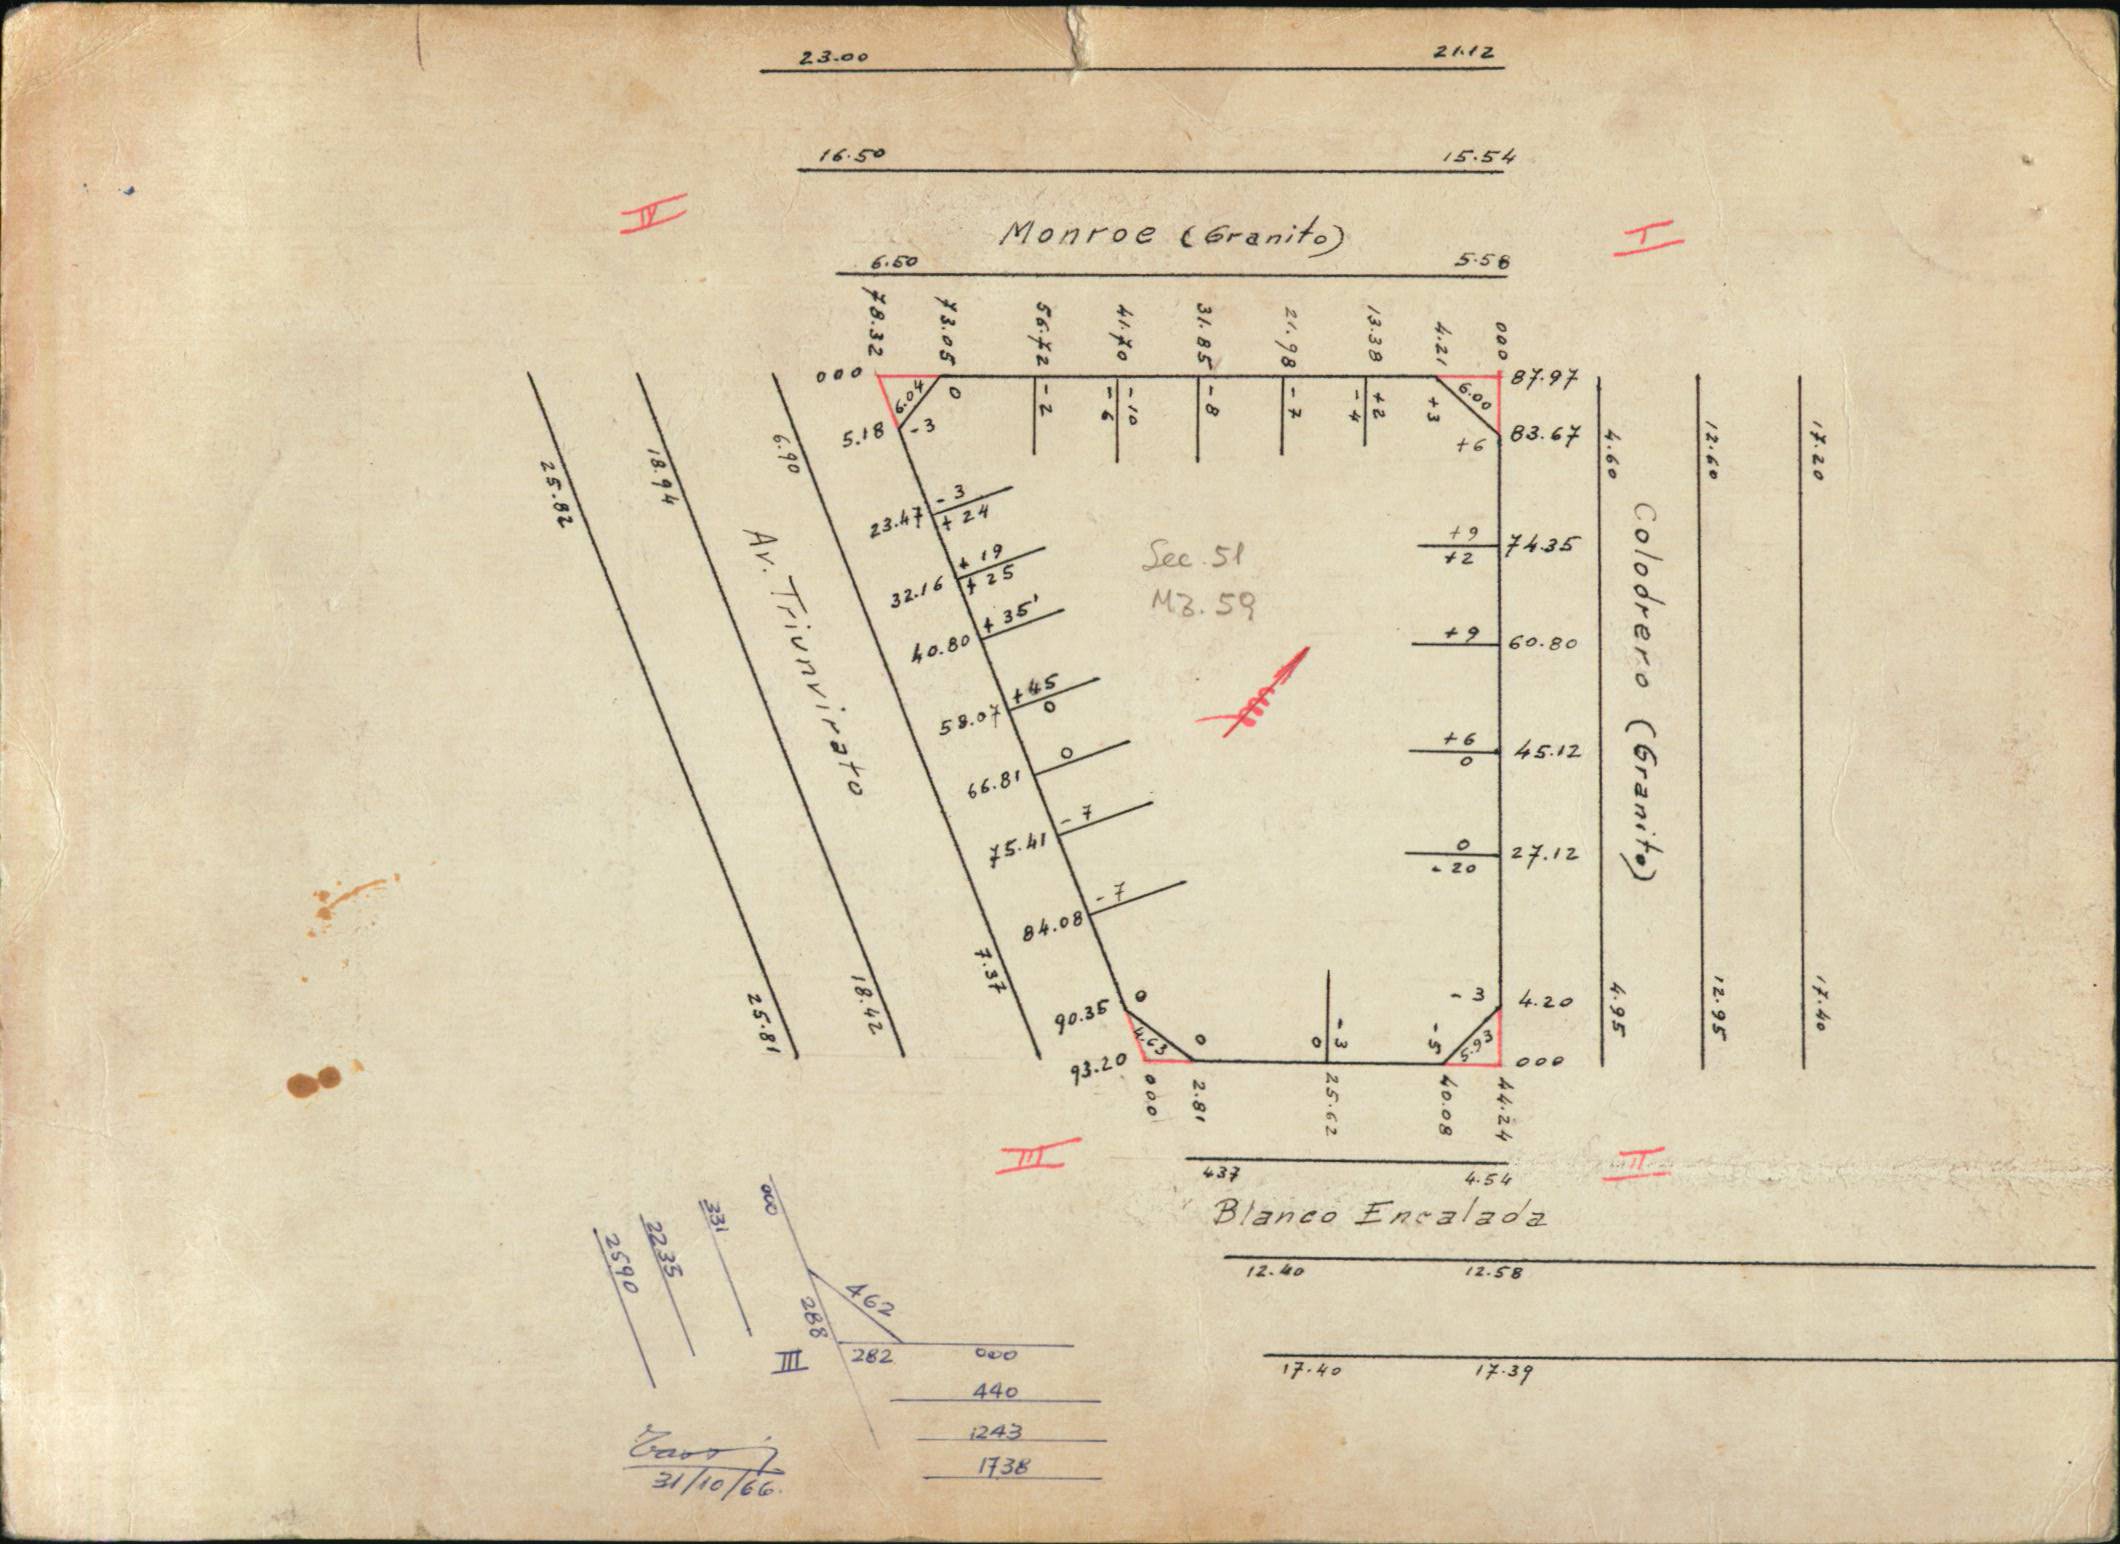 23.00 21.12
16.50 15.54
IV
I
Monroe (Granito)
6.50 5.58
78.32
73.05
56.72
41.70
31.85
21.98
13.38
4.21
000
000
6.04
0
-2
-6
-10
-8
-7
-4
+2
+3
6.00
87.97
5.18
-3
+6
83.67
4.60
12.60
17.20
6.90
18.94
25.82
23.47
-3
+24
32.16
+19
+25
40.80
+35'
58.07
+45
0
66.81
0
75.41
-7
84.08
-7
Av. Triunvirato
Sec. 51
Mz. 59
+9
+2
74.35
+9
60.80
+6
0
45.12
0
-20
27.12
Colodrero (Granito)
7.37
18.42
25.81
90.35
0
4.63
93.20
0
0
-3
-5
5.93
-3
4.20
000
4.95
12.95
17.40
000
2.81
25.62
40.08
44.24
III
II
437 4.54
Blanco Encalada
12.40 12.58
17.40 17.39
000
331
2235
2590
288
462
III
282 000
440
1243
1738
31/10/66.